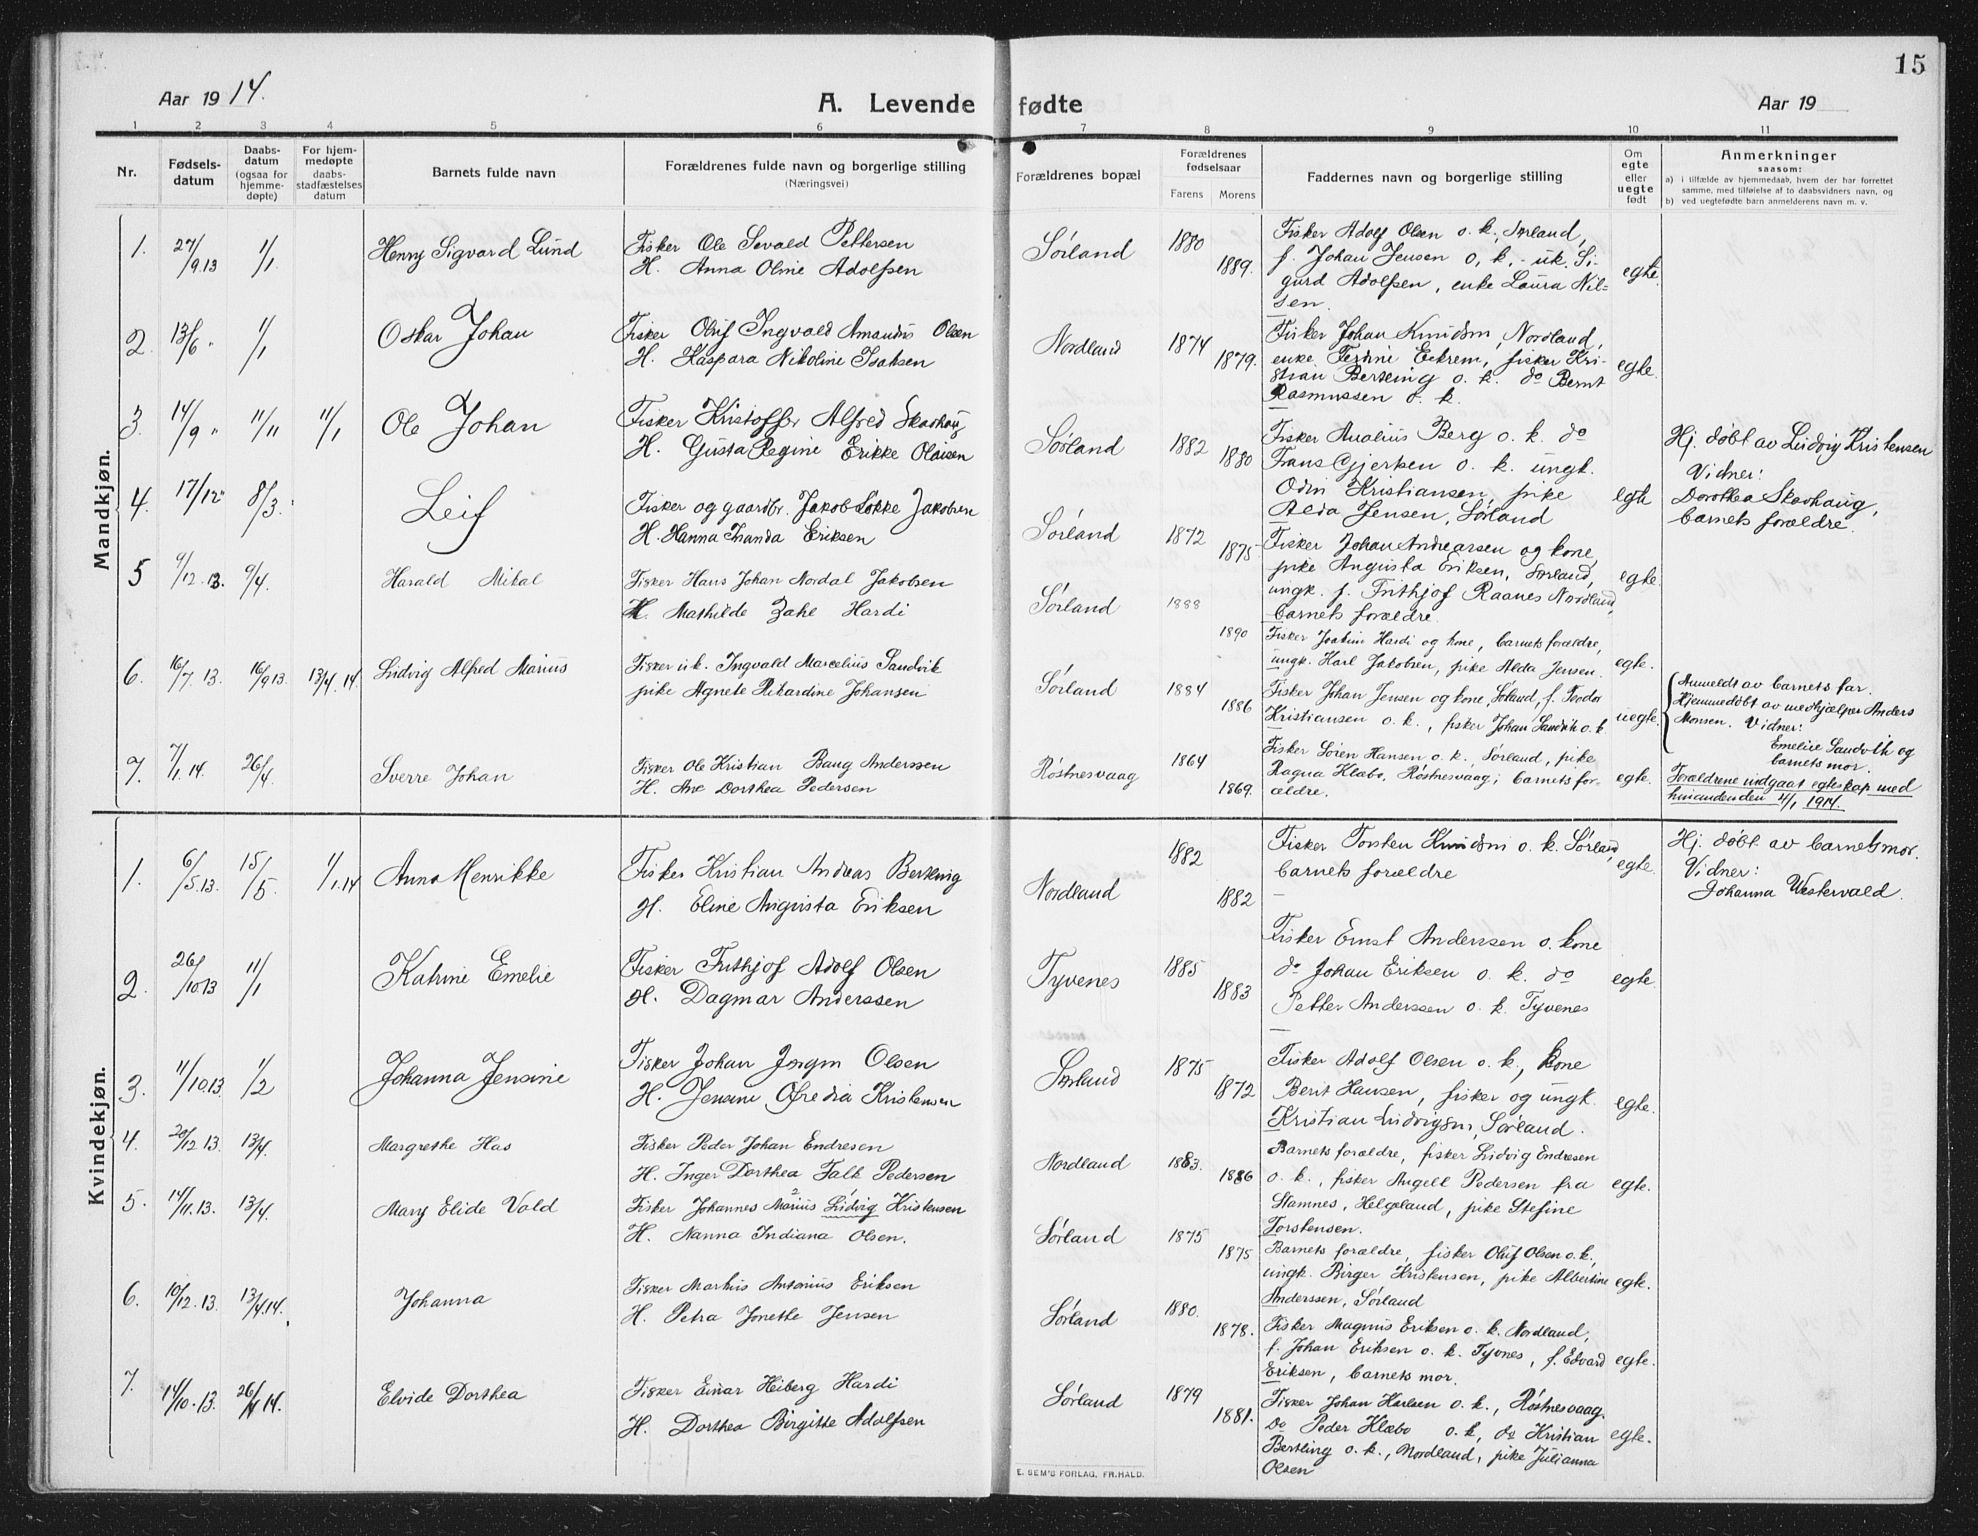 15
Aar 1914.
A. Levende fødte
Aar 19
1 2 3 4 5 6 7 8 9 10 11
Nr.
Fødsels-
datum
Daabs-
datum
(ogsaa for
hjemme-
døpte)
For hjem-
medøpte
daabs-
stadfæstelses
datum
Barnets fulde navn
Forældrenes fulde navn og borgerlige stilling
(Næringsvei)
Forældrenes bopæl
Forældrenes
fødselsaar
Farens Morens
Faddernes navn og borgerlige stilling
Om
egte
eller
uegte
født
Anmerkninger
saasom:
a) i tilfælde av hjemmedaab, hvem der har forrettet
samme, med tilføielse af to daabsvidners navn, og
b) ved uegtefødte barn anmelderens navn m. v.
Mandkjøn.
1. 27/9.13 1/1 Henry Sigvard Lund
Fisker Ole Sevald Pettersen
H. Anna Oline Adolfsen
Sørland 1880 1889.
Fisker Adolf Olsen o. k., Sørland,
f. Johan Jensen o. k. - uk. Si-
gurd Adolfsen, enke Laura Nil-
sen.
egte.
2. 13/6 " 1/1 Oskar Johan
Fisker Oluf Ingvald Amandus Olsen
H. Kaspara Nikoline Isaksen
Nordland 1874 1879.
Fisker Johan Knudsen, Nordland,
enke Ferdine Eekrem, fisker Kri-
stian Bertling o. k. do Bernt
Rasmussen o. k.
egte.
3. 14/9 " 11/11 11/1 Ole Johan
Fisker Kristoffer Alfred Skarhaug
H. Gusta Regine Erikke Olaisen
Sørland 1882 1880
Fisker Analius Berg o. k. do
Frans Gjertsen o. k. ungk.
Odin Kristiansen, pike
Alda Jensen, Sørland
egte
Hj. døbt av Ludvig Kristensen
Vidner:
Dorothea Skarhaug,
barnets forældre.
4. 17/12 " 8/3. Leif
Fisker og gaardbr. Jakob Løkke Jakobsen
H. Hanna Thanda Eriksen
Sørland 1872 1875
Fisker Johan Andrearsen og kone,
pike Augusta Eriksen, Sørland,
ungk. f. Frithjof Raanes Nordland,
barnets forældre.
egte
5 9/12.13. 9/4. Harald Mikal
Fisker Hans Johan Nordal Jakobsen
H. Mathilde Zahe Hardi
Sørland 1888 1890
Fisker Joakim Hardi og kone, barnets forældre,
ungk. Karl Jakobsen, pike Alda Jensen.
egte.
6. 16/7.13. 16/9 13. 13/4.14. Ludvig Alfred Marius
Fisker u.k. Ingvald Marcelius Sandvik
pike Agnete Rikardine Johansen
Sørland 1884 1886
Fisker Johan Jensen og kone, Sørland, f. Teodor
Kristiansen o. k., fisker Johan Sandvik o. k.
uegte.
Anmeldt av barnets far.
Hjemmedøbt av medhjælper Anders
Monsen. Vidner:
Emelie Sandvik og
barnets mor.
Forældrene indgaat egteskap med
hinanden den 4/1 1914.
7. 7/1.14. 26/4. Sverre Johan
Fisker Ole Kristian Bang Anderssen
H. Ane Dorthea Pedersen
Røstnesvaag 1864 1869.
Fisker Søren Hansen o. k., Sørland, pike
Ragna Klæbo, Røstnesvaag; barnets for-
ældre.
egte.
Kvindekjøn.
1. 6/5.13. 15/5. 1/1.14 Anna Henrikke
Fisker Kristian Andreas Bertling
H. Eline Augusta Eriksen
Nordland 1882 1882
Fisker Torsten Knudsen o. k. Sørland,
barnets forældre
egte.
Hj. døbt av barnets mor.
Vidner:
Johanna Westervald.
2. 26/10.13 11/1 Katrine Emelie
Fisker Frithjof Adolf Olsen
H. Dagmar Anderssen
Tyvenes 1885 1883
Fisker Ernst Anderssen o. kone
do Johan Eriksen o. k. do
Petter Anderssen o. k. Tyvenes
egte.
3. 11/10.13 1/2 Johanna Jensine
Fisker Johan Jørgen Olsen
H. Jensine Øfredia Kristensen
Sørland 1875 1872
Fisker Adolf Olsen o. k., kone
Berit Hansen, fisker og ungk.
Kristian Ludvigsen, Sørland.
egte.
4. 20/12.13. 13/4. Margrethe Has
Fisker Peder Johan Endresen
H. Inger Dorthea Falk Pedersen
Nordland 1883. 1886
Barnets forældre, fisker Ludvig Endresen
o. k., fisker Angell Pedersen fra
Stamnes, Helgeland, pike Stefine
Torstensen.
egte.
5. 14/11.13. 13/4. Mary Elide Vold
Fisker Johannes Marius Ludvig Kristensen
H. Nanna Indiana Olsen.
Sørland 1875 1875
Barnets forældre, fisker Oluf Olsen o. k.,
ungk. Birger Kristensen, pike Albertine
Anderssen, Sørland
egte.
6. 10/12.13. 13/4.14. Johanna
Fisker Markus Antonius Eriksen
H. Petra Jonette Jensen
Sørland 1880. 1878.
Fisker Magnus Eriksen o. k. Nordland,
f. Johan Eriksen o. k. Tyvnes, f. Edvard
Eriksen, barnets mor.
egte.
7. 14/10.13. 26/4 14. Elvide Dorthea
Fisker Einar Heiberg Hardi
H. Dorthea Birgitte Adolfsen
Sørland 1879 1881.
Fisker Johan Karlsen o. k., Røstnesvaag.
Do Peder Klæbo o. k, do Kristian
Bertling o. k., Nordland, pike Julianna
Olsen
egte.
E. SEM'S FORLAG, FR.HALD.